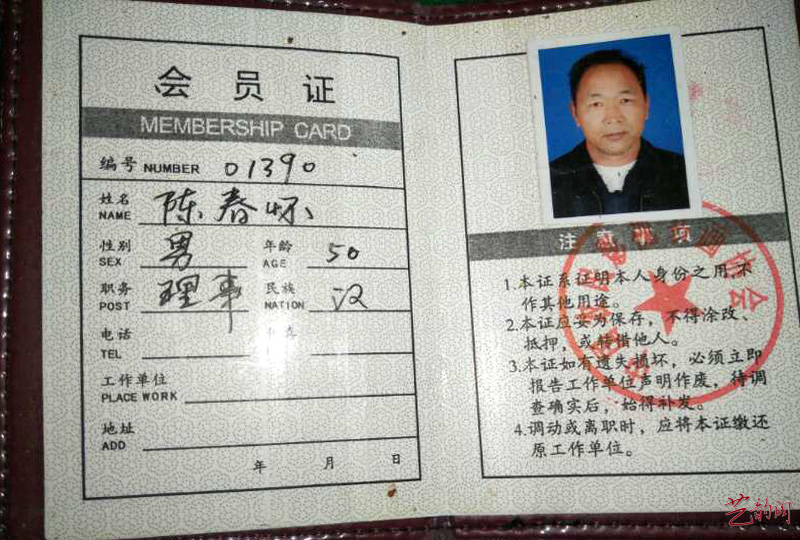 会员证
MEMBERSHIP CARD
编号 NUMBER 01390
姓名 NAME 陈春怀
性别 SEX 男 年龄 AGE 50
职务 POST 理事 民族 NATION 汉
电话 TEL
工作单位 PLACE WORK
地址 ADD
年 月 日
注意事项
1.本证系证明本人身份之用,不
作其他用途。
2.本证应妥为保存，不得涂改、
抵押，或转借他人。
3.本证如有遗失损坏，必须立即
报告工作单位声明作废，待调
查确实后，始得补发。
4.调动或离职时，应将本证缴还
原工作单位。
艺韵阁